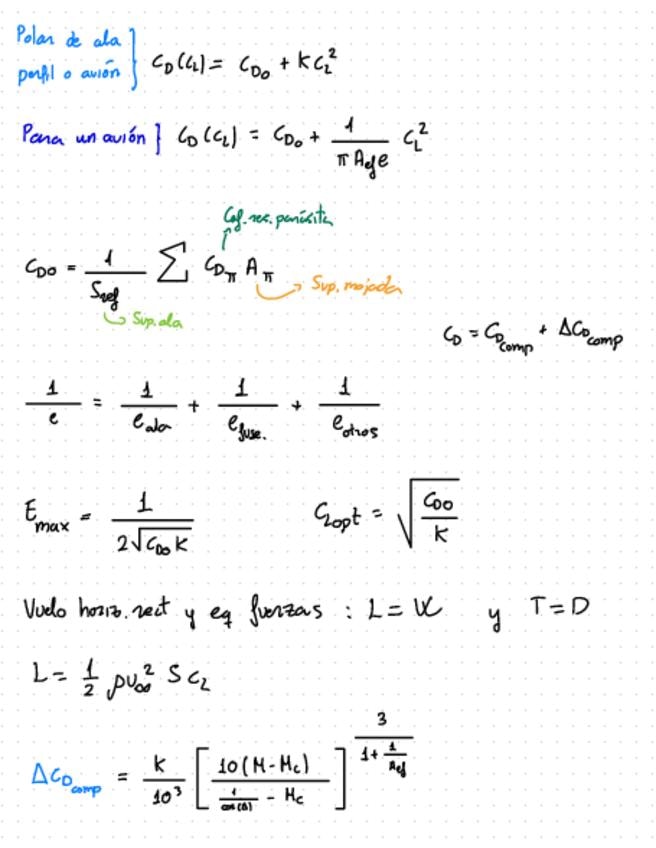 Polar de ala
perfil o avión } C_D(C_L) = C_D0 + K C_L^2
Para un avión } C_D(C_L) = C_D0 + 1/(π A_ef e) C_L^2
Cof. res. parásita
C_D0 = 1/S_ref Σ C_Dπ A_π
Sup. mojada
Sup. ala
C_D = C_D comp + ΔC_D comp
1/e = 1/e_ala + 1/e_fuse. + 1/e_otros
E_max = 1/(2√(C_D0 K)) C_Lopt = √(C_D0/K)
Vuelo horiz. rect y eq fuerzas : L = W y T = D
L = 1/2 ρ u_∞^2 S C_L
ΔC_D comp = K/10^3 [ 10(M - M_c) / (1/cos(Λ) - M_c) ]^(3/(1 + 1/A_ef))